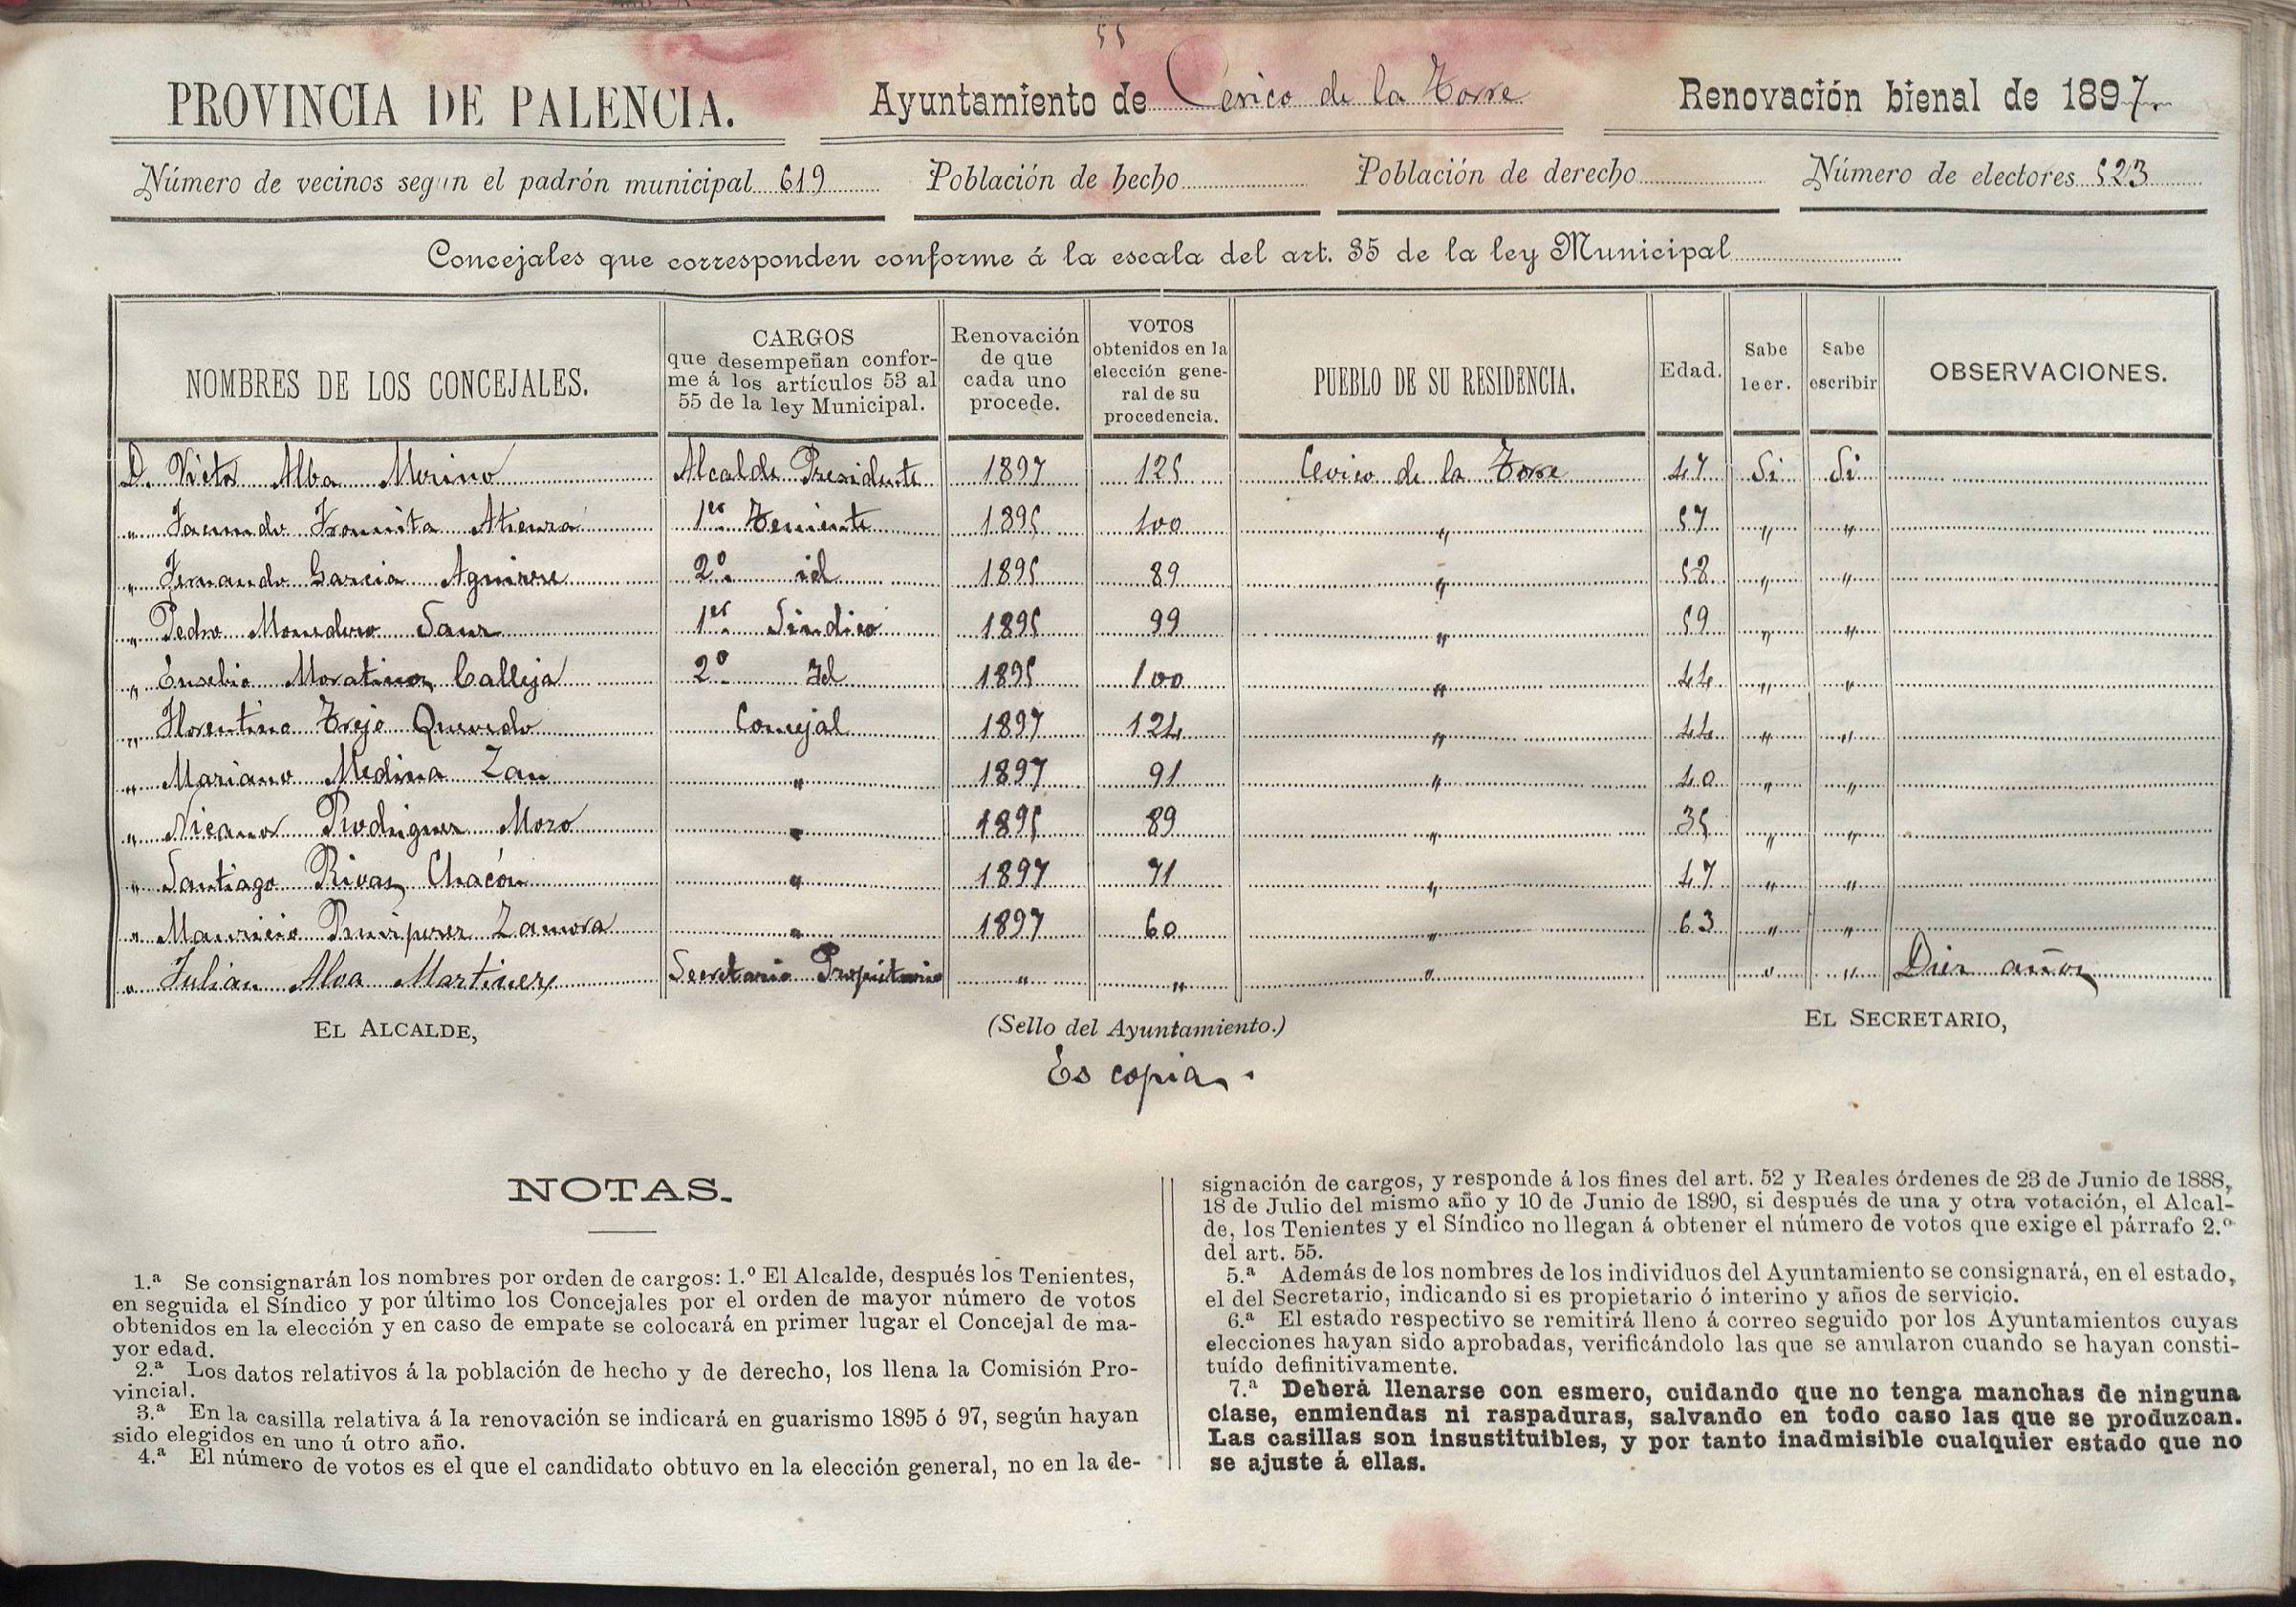 55
PROVINCIA DE PALENCIA. Ayuntamiento de Cevico de la Torre Renovación bienal de 1897
Número de vecinos segun el padrón municipal 619 Población de hecho Población de derecho Número de electores 523
Concejales que corresponden conforme á la escala del art. 35 de la ley Municipal
NOMBRES DE LOS CONCEJALES. CARGOS que desempeñan conforme á los artículos 53 al 55 de la ley Municipal. Renovación de que cada uno procede. VOTOS obtenidos en la elección general de su procedencia. PUEBLO DE SU RESIDENCIA. Edad. Sabe leer. Sabe escribir OBSERVACIONES.
D. Victor Alba Merino Alcalde Presidente 1897 125 Cevico de la Torre 47 Si Si
" Facundo Fromista Atienza 1er Teniente 1895 100 " 57 " "
" Fernando Garcia Aguirre 2º id 1895 89 " 58 " "
" Pedro Monedero Sanz 1er Sindico 1895 99 " 59 " "
" Eusebio Moratinos Calleja 2º Id 1895 100 " 44 " "
" Florentino Trejo Quevedo Concejal 1897 124 " 44 " "
" Mariano Medina Zan " 1897 91 " 40 " "
" Nicanor Rodriguez Moro " 1895 89 " 35 " "
" Santiago Rivas Chacón " 1897 71 " 47 " "
" Mauricio Zamora " 1897 60 " 63 " "
" Julian Alva Martinez Secretario Propietario " " " " " Diez años
EL ALCALDE, (Sello del Ayuntamiento.) EL SECRETARIO,
Es copia.
NOTAS.
1.ª Se consignarán los nombres por orden de cargos: 1.º El Alcalde, después los Tenientes,
en seguida el Síndico y por último los Concejales por el orden de mayor número de votos
obtenidos en la elección y en caso de empate se colocará en primer lugar el Concejal de ma-
yor edad.
2.ª Los datos relativos á la población de hecho y de derecho, los llena la Comisión Pro-
vincial.
3.ª En la casilla relativa á la renovación se indicará en guarismo 1895 ó 97, según hayan
sido elegidos en uno ú otro año.
4.ª El número de votos es el que el candidato obtuvo en la elección general, no en la de-
signación de cargos, y responde á los fines del art. 52 y Reales órdenes de 23 de Junio de 1888,
18 de Julio del mismo año y 10 de Junio de 1890, si después de una y otra votación, el Alcal-
de, los Tenientes y el Síndico no llegan á obtener el número de votos que exige el párrafo 2.º
del art. 55.
5.ª Además de los nombres de los individuos del Ayuntamiento se consignará, en el estado,
el del Secretario, indicando si es propietario ó interino y años de servicio.
6.ª El estado respectivo se remitirá lleno á correo seguido por los Ayuntamientos cuyas
elecciones hayan sido aprobadas, verificándolo las que se anularon cuando se hayan consti-
tuído definitivamente.
7.ª Deberá llenarse con esmero, cuidando que no tenga manchas de ninguna
clase, enmiendas ni raspaduras, salvando en todo caso las que se produzcan.
Las casillas son insustituibles, y por tanto inadmisible cualquier estado que no
se ajuste á ellas.